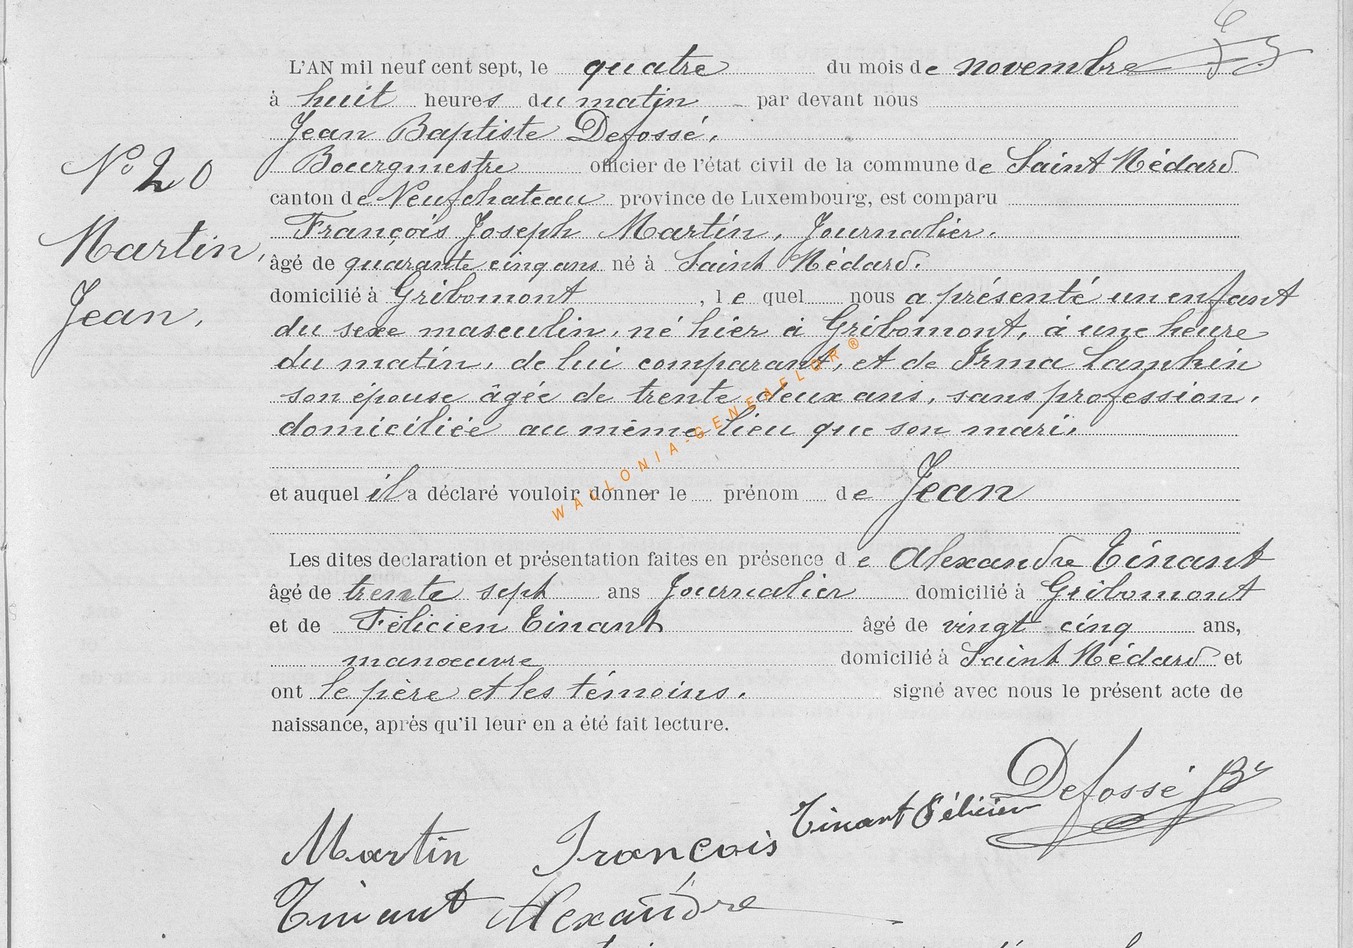 L'AN mil neuf cent sept, le quatre du mois de novembre
à huit heures du matin par devant nous
Jean Baptiste Defossé,
Bourgmestre officier de l'état civil de la commune de Saint Médard
canton de Neufchateau province de Luxembourg, est comparu
François Joseph Martin, Journalier.
âgé de quarante cinq ans né à Saint Médard.
domicilié à Gribomont, le quel nous a présenté un enfant
du sexe masculin, né hier à Gribomont, à une heure
du matin, de lui comparant, et de Irma Lamkin
son épouse âgée de trente deux ans, sans profession,
domiciliée au même lieu que son mari,
et auquel il a déclaré vouloir donner le prénom de Jean
Les dites declaration et présentation faites en présence de Alexandre Tinant
âgé de trente sept ans Journalier domicilié à Gribomont
et de Félicien Tinant âgé de vingt cinq ans,
manoeuvre domicilié à Saint Médard et
ont le père et les témoins. signé avec nous le présent acte de
naissance, après qu'il leur en a été fait lecture.
No 20
Martin,
Jean.
WALLONIA-GENEAFLOR®
Defossé JB
Tinant Félicien
Martin François
Tinant Alexandre